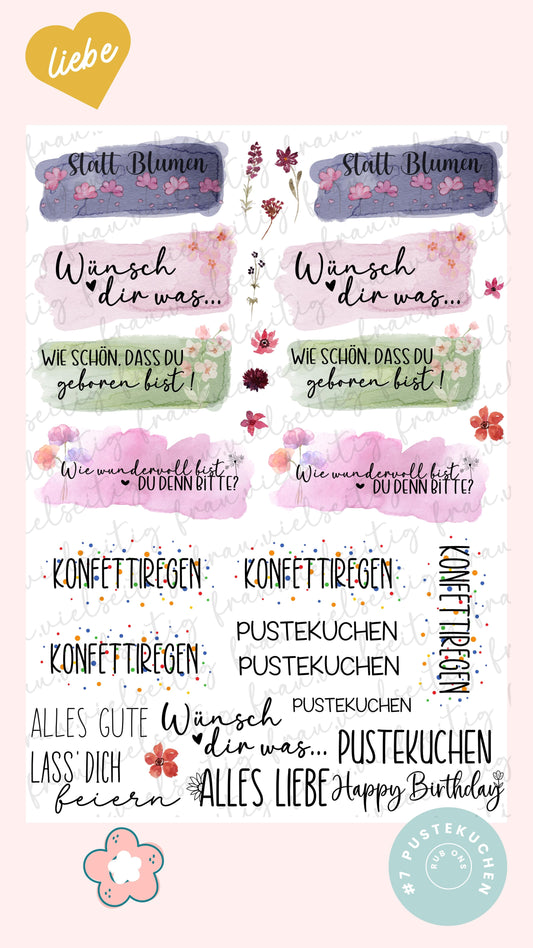 liebe
Statt Blumen
Statt Blumen
Wünsch
dir was...
Wünsch
dir was...
WIE SCHÖN, DASS DU
geboren bist!
WIE SCHÖN, DASS DU
geboren bist!
Wie wundervoll bist
DU DENN BITTE?
Wie wundervoll bist
DU DENN BITTE?
KONFETTIREGEN
KONFETTIREGEN
KONFETTIREGEN
KONFETTIREGEN
PUSTEKUCHEN
PUSTEKUCHEN
PUSTEKUCHEN
ALLES GUTE
Wünsch
dir was...
PUSTEKUCHEN
LASS' DICH
feiern
ALLES LIEBE
Happy Birthday
#7 PUSTEKUCHEN
RUB ONS
frau.vielseitig